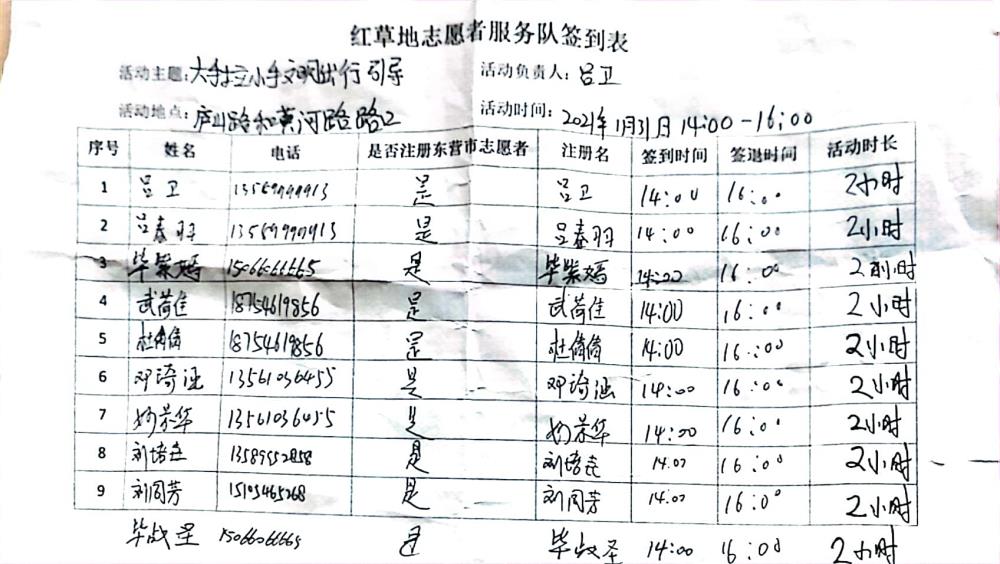 红草地志愿者服务队签到表
活动主题: 大手拉小手文明出行引导 活动负责人: 吕卫
活动地点: 庐山路和黄河路路口 活动时间: 2021年1月31日 14:00-16:00
序号 姓名 电话 是否注册东营市志愿者 注册名 签到时间 签退时间 活动时长
1 吕卫 是 吕卫 14:00 16:00 2小时
2 吕春羽 是 吕春羽 14:00 16:00 2小时
3 毕紫嫣 是 毕紫嫣 14:00 16:00 2小时
4 武荷佳 18754619856 是 武荷佳 14:00 16:00 2小时
5 杜倩倩 18754619856 是 杜倩倩 14:00 16:00 2小时
6 邓琦涵 13561036455 是 邓琦涵 14:00 16:00 2小时
7 13561036455 是 14:00 16:00 2小时
8 是 14:00 16:00 2小时
9 刘同芳 是 刘同芳 14:00 16:00 2小时
毕战圣 是 毕战圣 14:00 16:00 2小时